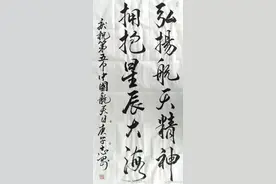 弘揚航天精神
拥抱星辰大海
祝第五个中國航天日庚子